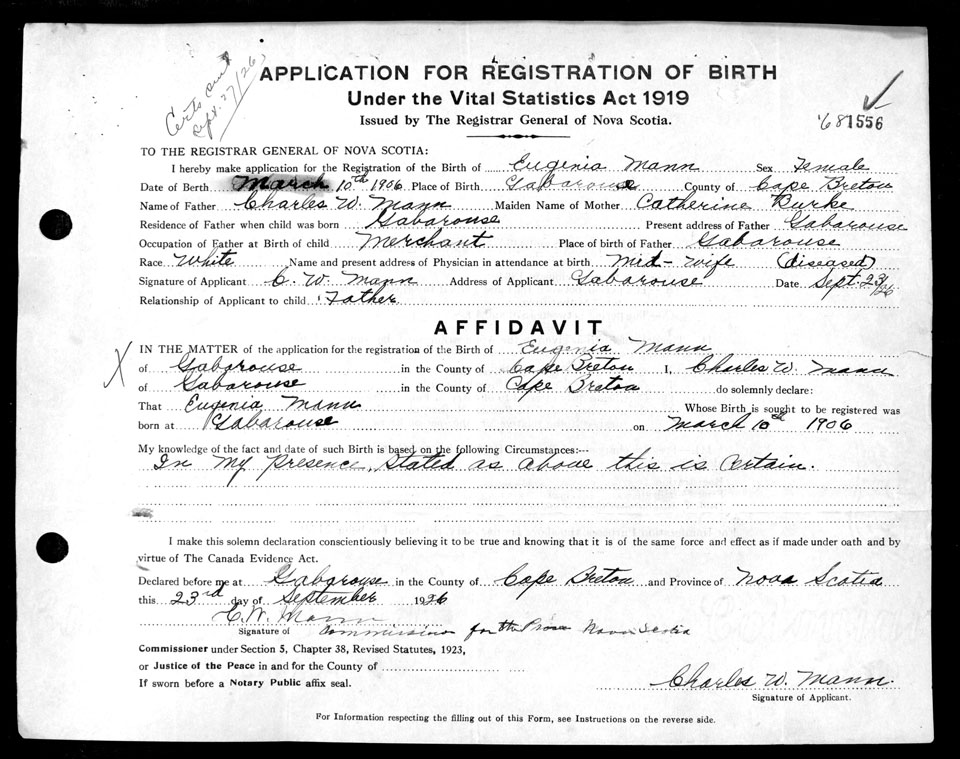 Certs out
Sept. 27/26
APPLICATION FOR REGISTRATION OF BIRTH
Under the Vital Statistics Act 1919
Issued by The Registrar General of Nova Scotia.
'681556
TO THE REGISTRAR GENERAL OF NOVA SCOTIA:
I hereby make application for the Registration of the Birth of Eugenia Mann Sex Female
Date of Berth March 10th 1906 Place of Birth Gabarouse County of Cape Breton
Name of Father Charles W. Mann Maiden Name of Mother Catherine Burke
Residence of Father when child was born Gabarouse Present address of Father Gabarouse
Occupation of Father at Birth of child Merchant Place of birth of Father Gabarouse
Race White Name and present address of Physician in attendance at birth Mid-Wife (diseased)
Signature of Applicant C. W. Mann Address of Applicant Gabarouse Date Sept. 23/26
Relationship of Applicant to child Father
AFFIDAVIT
X
IN THE MATTER of the application for the registration of the Birth of Eugenia Mann
of Gabarouse in the County of Cape Breton I, Charles W. Mann
of Gabarouse in the County of Cape Breton do solemnly declare:
That Eugenia Mann Whose Birth is sought to be registered was
born at Gabarouse on March 10th 1906
My knowledge of the fact and date of such Birth is based on the following Circumstances:--
In my presence, stated as above this is certain.
I make this solemn declaration conscientiously believing it to be true and knowing that it is of the same force and effect as if made under oath and by
virtue of The Canada Evidence Act.
Declared before me at Gabarouse in the County of Cape Breton and Province of Nova Scotia
this 23rd day of September 1926
C.W. Mann
Signature of Commission for the Prov Nova Scotia
Commissioner under Section 5, Chapter 38, Revised Statutes, 1923,
or Justice of the Peace in and for the County of
If sworn before a Notary Public affix seal.
Charles W. Mann.
Signature of Applicant.
For Information respecting the filling out of this Form, see Instructions on the reverse side.